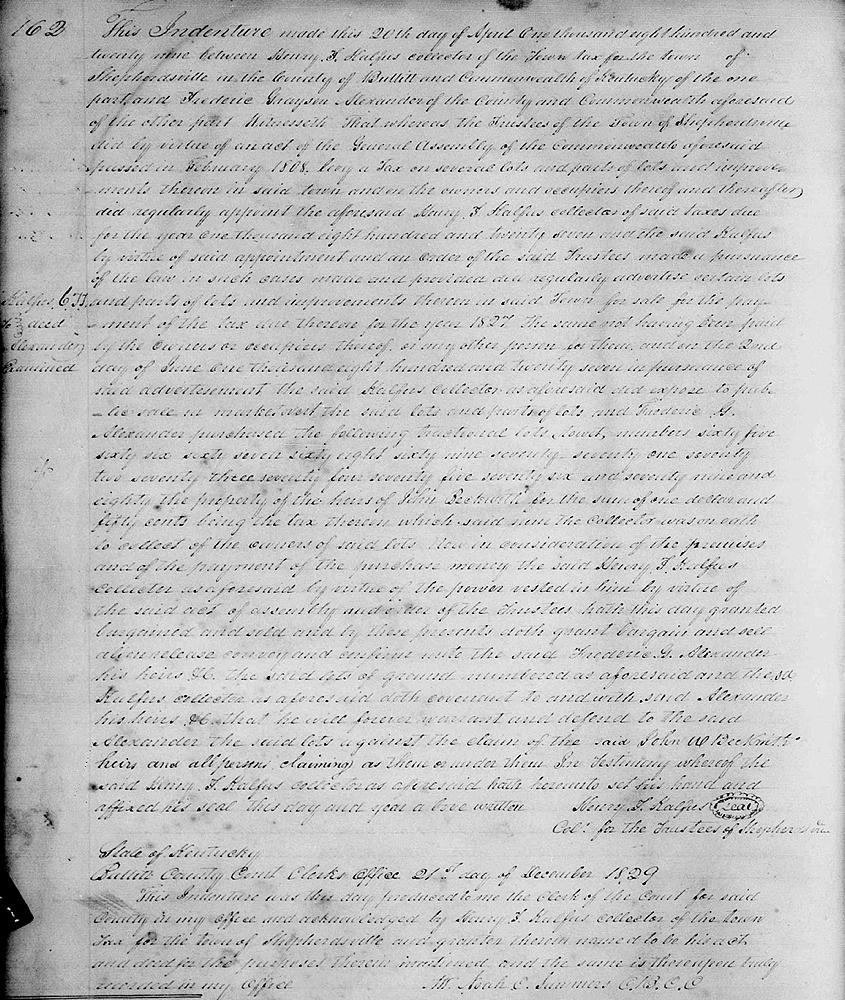 162
This Indenture made this 20th day of April One thousand eight hundred and
twenty nine between Henry F. Kalfus collector of the Town tax for the town of
Shepherdsville in the County of Bullitt and Commonwealth of Kentucky of the one
part and Frederic Grayson Alexander of the County and Commonwealth aforesaid
of the other part Witnesseth That whereas the Trustees of the Town of Shepherdsville
did by virtue of an act of the General Assembly of the Commonwealth aforesaid
passed in February 1808. levy a Tax on several lots and parts of lots and improve-
ments thereon in said town and on the owners and occupiers thereof and thereafter
did regularly appoint the aforesaid Henry F. Kalfus collector of said taxes due
for the year one thousand eight hundred and twenty seven and the said Kalfus
by virtue of said appointment and an order of the said Trustees made in pursuance
of the law in such cases made and provided did regularly advertise certain lots
and parts of lots and improvements thereon in said Town for sale for the pay-
-ment of the tax due thereon for the year 1827 The same not having been paid
by the owners or occupiers thereof, or any other person for them, and on the 2nd
day of June One thousand eight hundred and twenty seven in pursuance of
said advertisement the said Kalfus collector as aforesaid did expose to pub-
-lic sale in market overt the said lots and parts of lots and Frederic G.
Alexander purchased the following fractional lots, towit, numbers sixty five
sixty six sixty seven sixty eight sixty nine seventy - seventy one seventy
two seventy three seventy four seventy five seventy six and seventy nine and
eighty the property of the heirs of John Beckwith for the sum of one dollar and
fifty cents being the tax thereon which said sum the collector was on oath
to collect of the owners of said lots. Now in consideration of the premises
and of the payment of the purchase money the said Henry F. Kalfus
collector as aforesaid by virtue of the power vested in him by virtue of
the said act of assembly and order of the Trustees hath this day granted
bargained and sold and by these presents doth grant bargain and sell
alien release convey and confirm unto the said Frederic G. Alexander
his heirs &c. the said lots of ground numbered as aforesaid and the sd
Kalfus collector as aforesaid doth covenant to and with said Alexander
his heirs &c. that he will forever warrant and defend to the said
Alexander the said lots against the claim of the said John W Beckwith
heirs and all persons claiming as them or under them In Testimony whereof the
said Henry F. Kalfus collector as aforesaid hath hereunto set his hand and
affixed his seal this day and year above written Henry F. Kalfus Seal
Colr. for the Trustees of Shepherdsville
Kalfus
to deed
Alexander
Examined
State of Kentucky
Bullitt County Court Clerks Office 21st day of December 1829
This Indenture was this day produced to me the Clerk of the Court for said
County in my office and acknowledged by Henry F Kalfus collector of the town
Tax for the town of Shepherdsville and grantor therein named to be his act
and deed for the purposes therein mentioned, and the same is thereupon truly
recorded in my Office Att. Noah C. Summers C.B.C.C